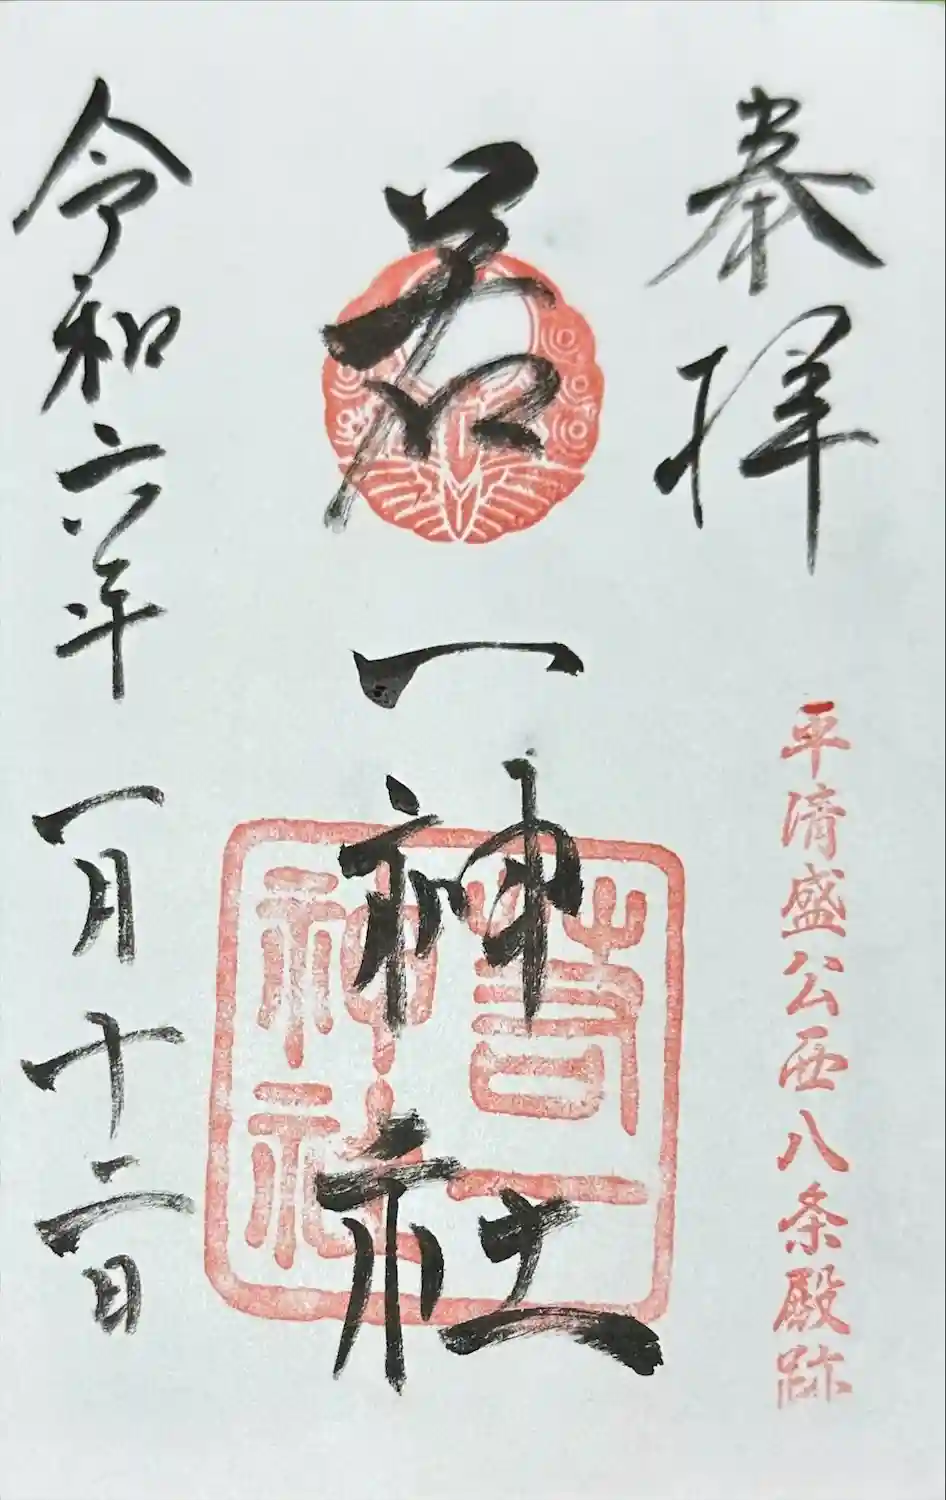 奉拝
平清盛公西八条殿跡
若一神社
若一
神社
令和六年 一月十二日